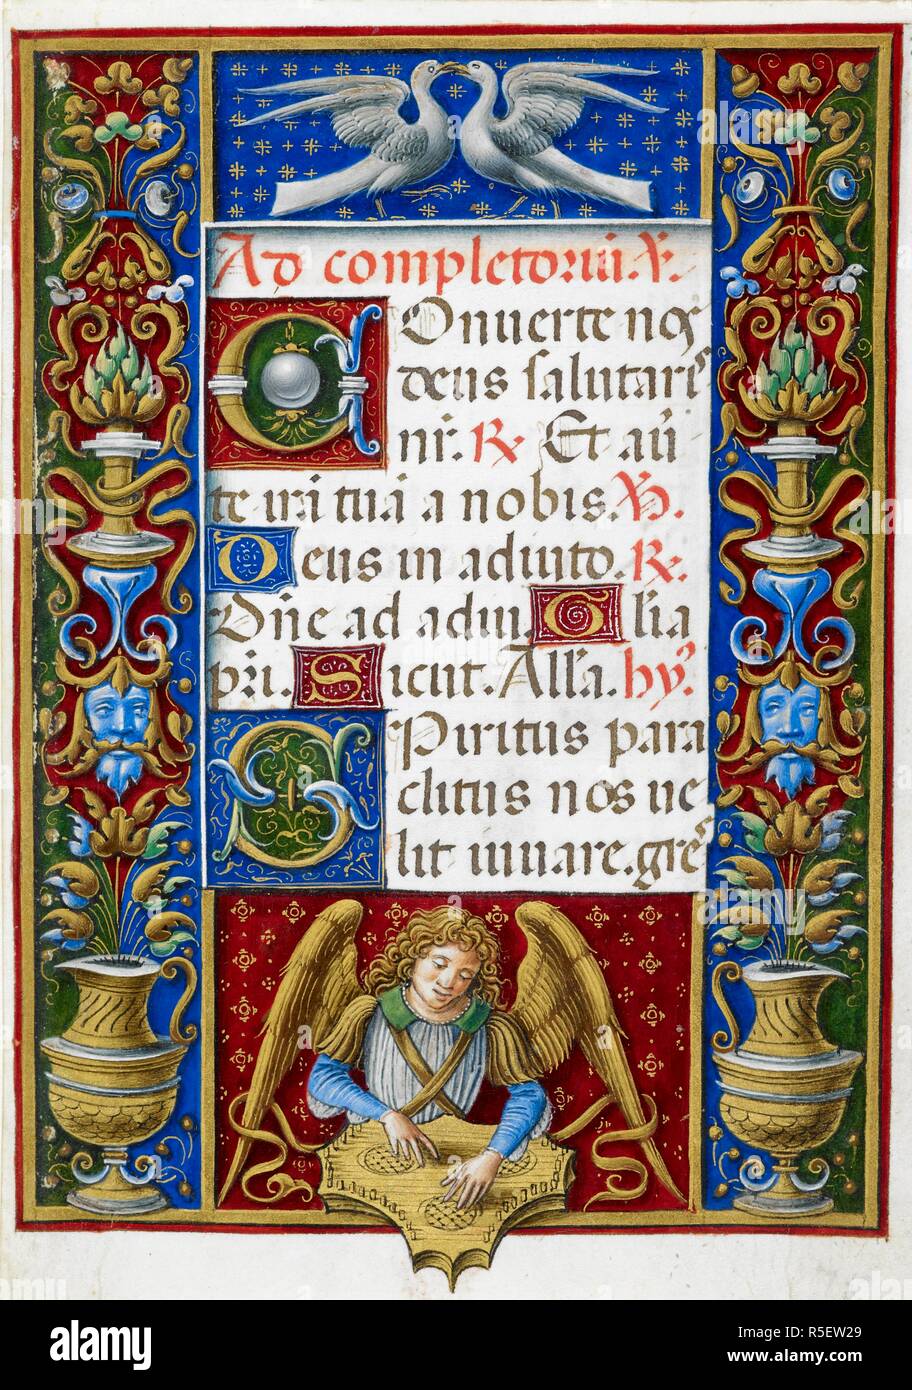 Ad completoriū. V.
Onuerte nos
deus salutarꝭ
nr̄. R Et au̅
te irā tuā a nobis. V.
Deus in adiuto. R.
Dn̄e ad adiu. Gl̄ia
pr̄i. Sicut. All̄a. hyꝰ.
Spiritus para
clitus nos ue
lit iuuare. greꝭ
alamy
Image ID: R5EW29
www.alamy.com